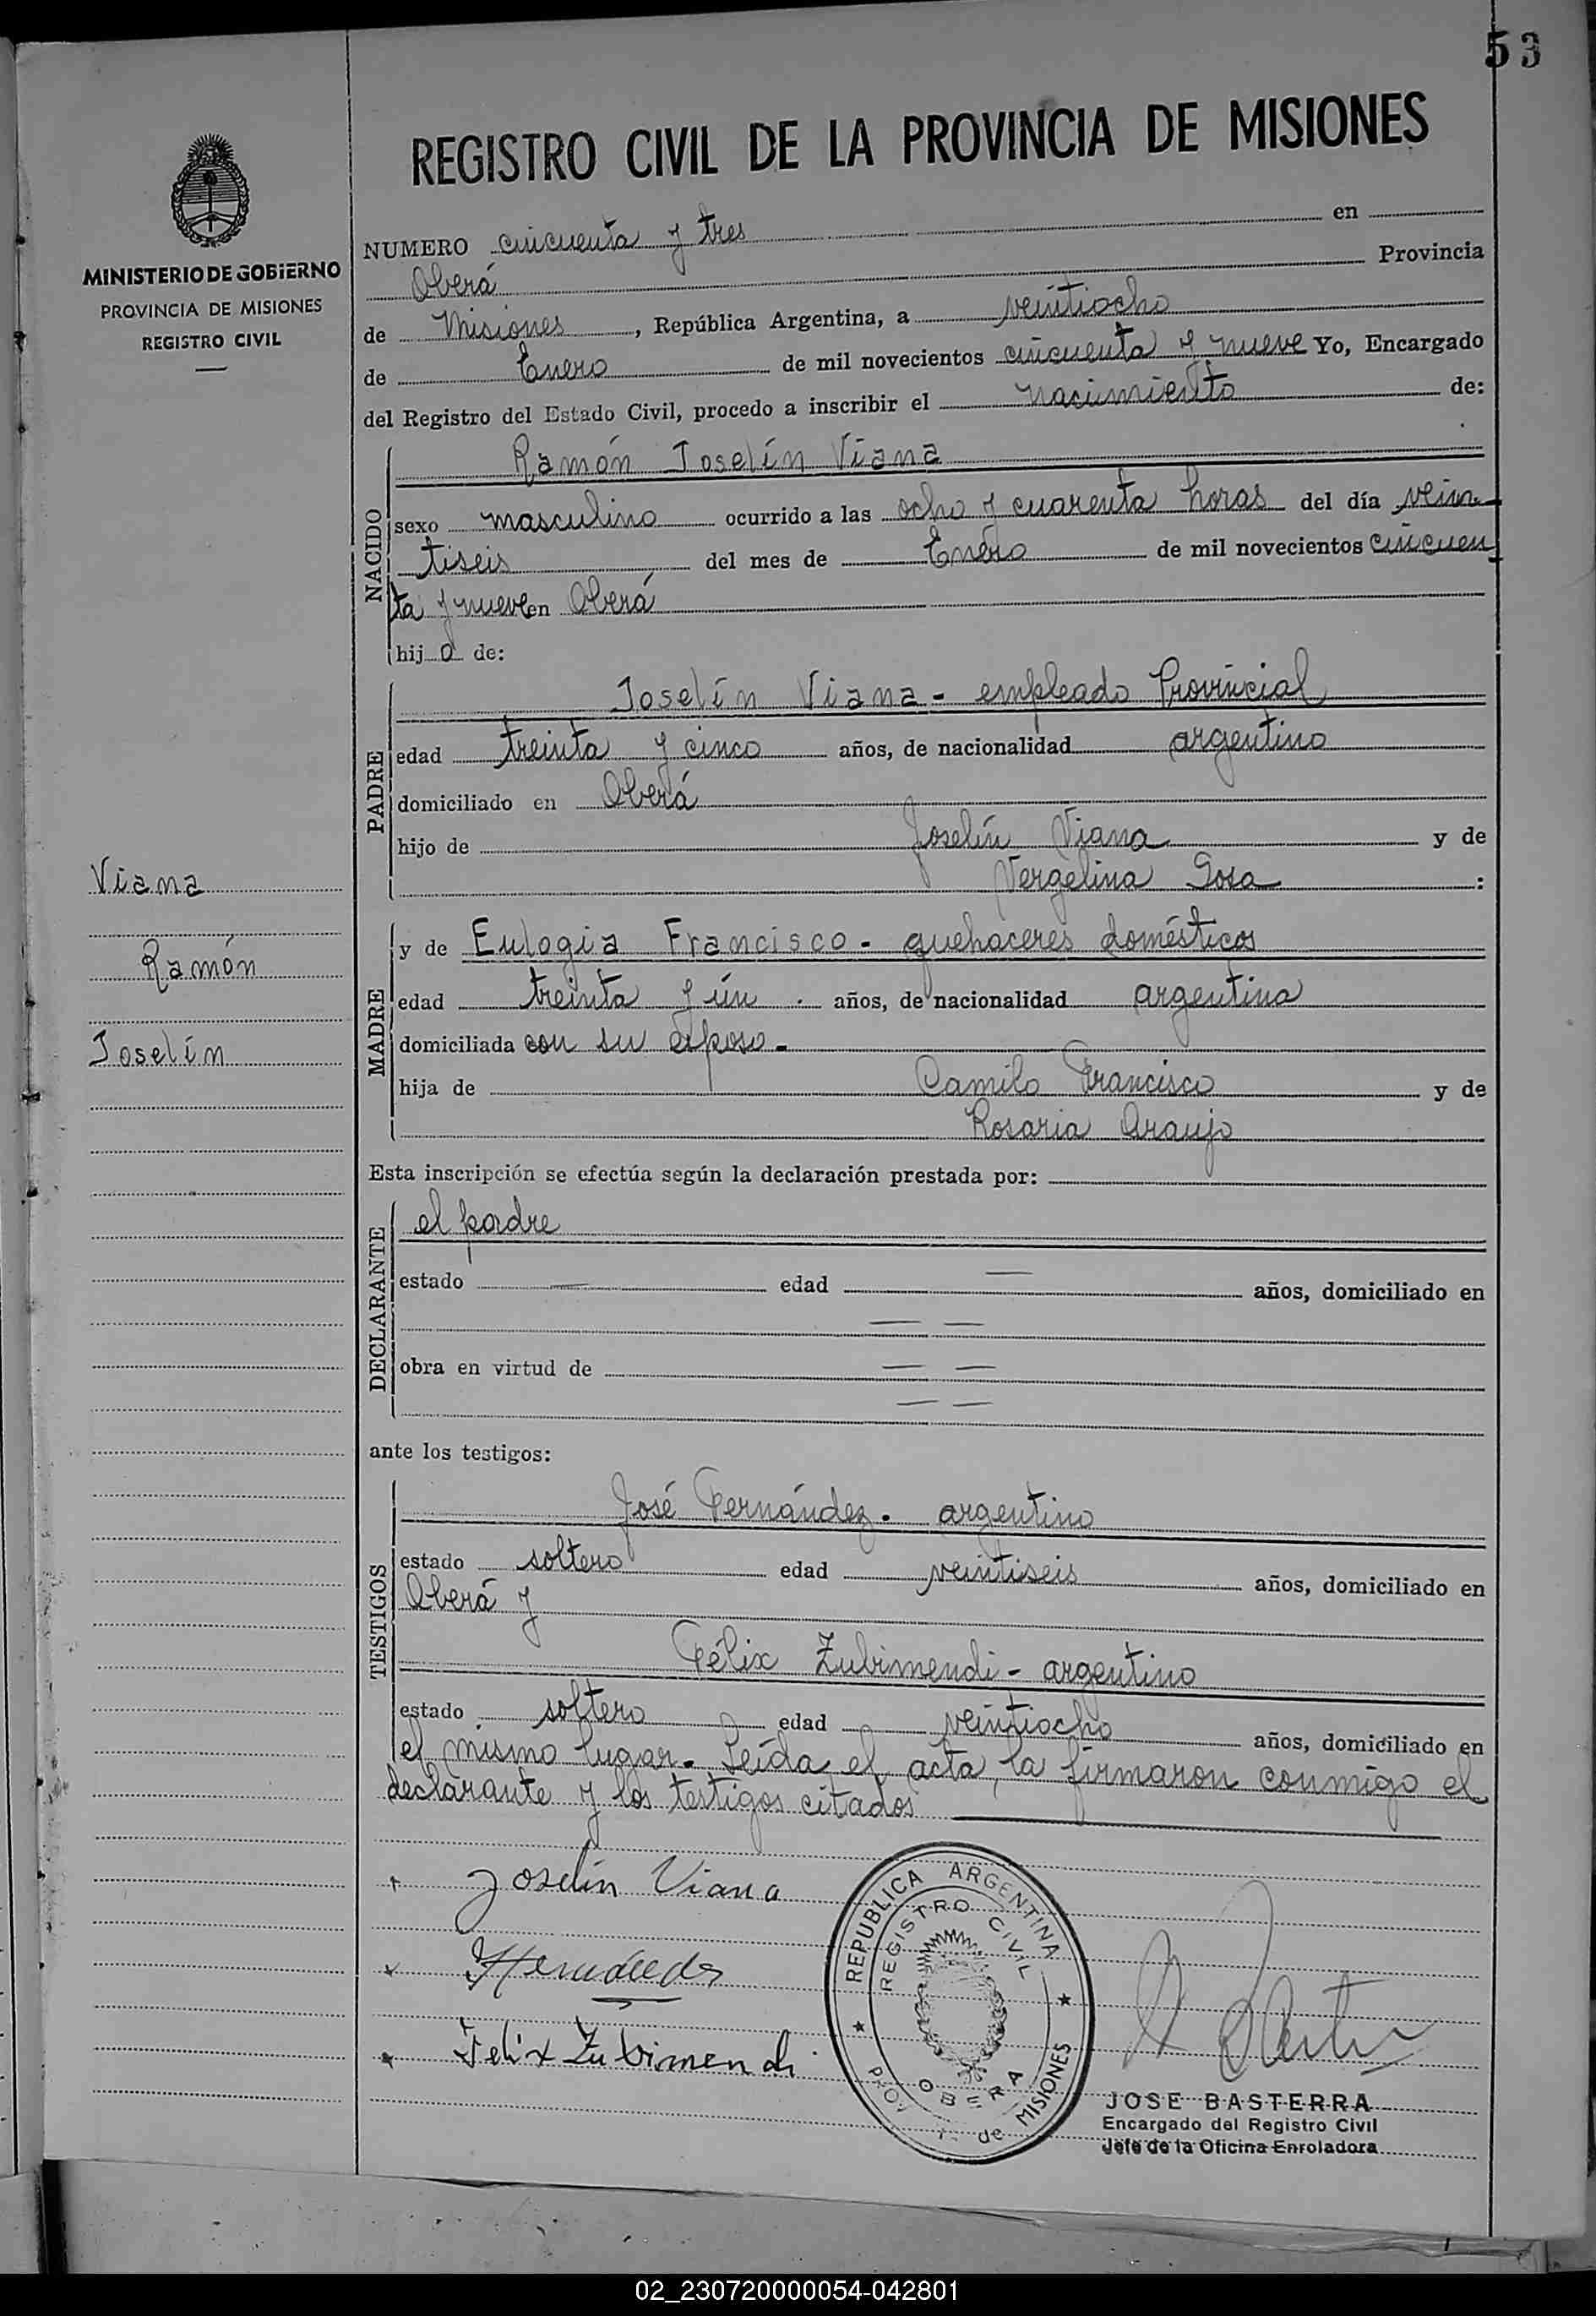 53
REGISTRO CIVIL DE LA PROVINCIA DE MISIONES
MINISTERIO DE GOBIERNO
PROVINCIA DE MISIONES
REGISTRO CIVIL
NUMERO cincuenta y tres en
Oberá Provincia
de Misiones, República Argentina, a veintiocho
de Enero de mil novecientos cincuenta y nueve Yo, Encargado
del Registro del Estado Civil, procedo a inscribir el nacimiento de:
NACIDO
Ramón Joselín Viana
sexo masculino ocurrido a las ocho y cuarenta horas del día vein
tiseis del mes de Enero de mil novecientos cincuen
ta y nueve en Oberá
hij o de:
PADRE
Joselín Viana - empleado Provincial
edad treinta y cinco años, de nacionalidad argentino
domiciliado en Oberá
hijo de Joselín Viana y de
Vergelina Sosa :
Viana
Ramón
Joselín
MADRE
y de Eulogia Francisco - quehaceres domésticos
edad treinta y ún . años, de nacionalidad argentina
domiciliada con su esposo -
hija de Camilo Francisco y de
Rosaria Araujo
Esta inscripción se efectúa según la declaración prestada por:
DECLARANTE
el padre
estado — edad — años, domiciliado en
— —
obra en virtud de — —
— —
ante los testigos:
TESTIGOS
José Fernández - argentino
estado soltero edad veintiseis años, domiciliado en
Oberá y
Félix Zubimendi - argentino
estado soltero edad veintiocho años, domiciliado en
el mismo lugar. Leída el acta, la firmaron conmigo el
declarante y los testigos citados
Joselín Viana
Felix Zubimendi
REPUBLICA ARGENTINA
REGISTRO CIVIL
OBERA
PROV. de MISIONES
JOSE BASTERRA
Encargado del Registro Civil
Jefe de la Oficina Enroladora
02_230720000054-042801